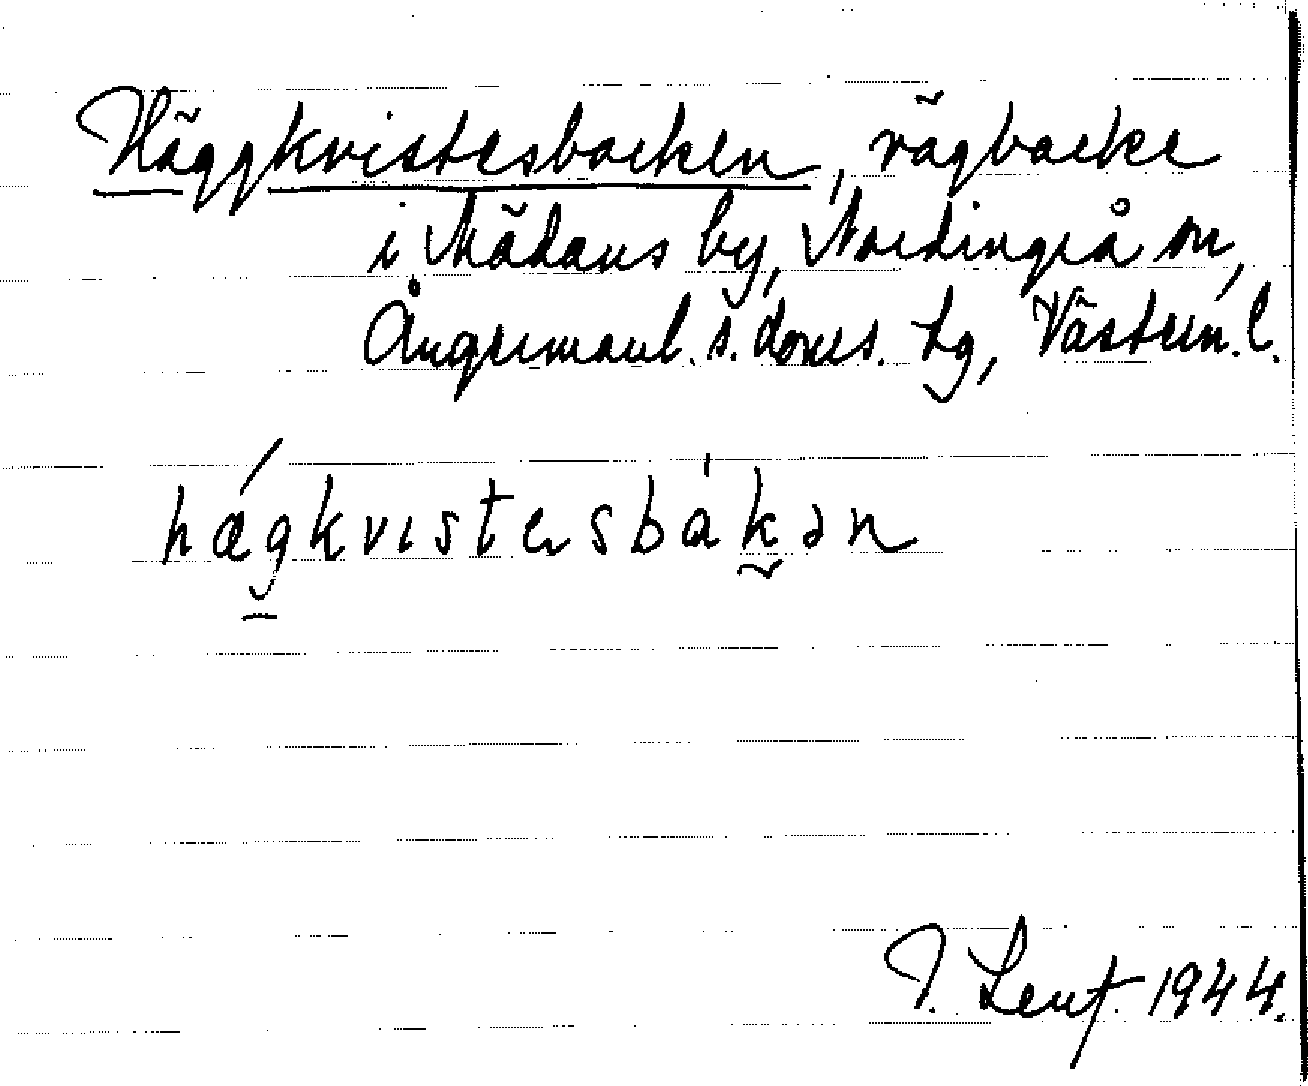 Häggkvistesbacken, vägbacke
i Mädans by, Nordingrå sn,
Ångermanl. s. doms. tg, Västern. l.
hǽgkvistesbákən
J. Lenf. 1944.